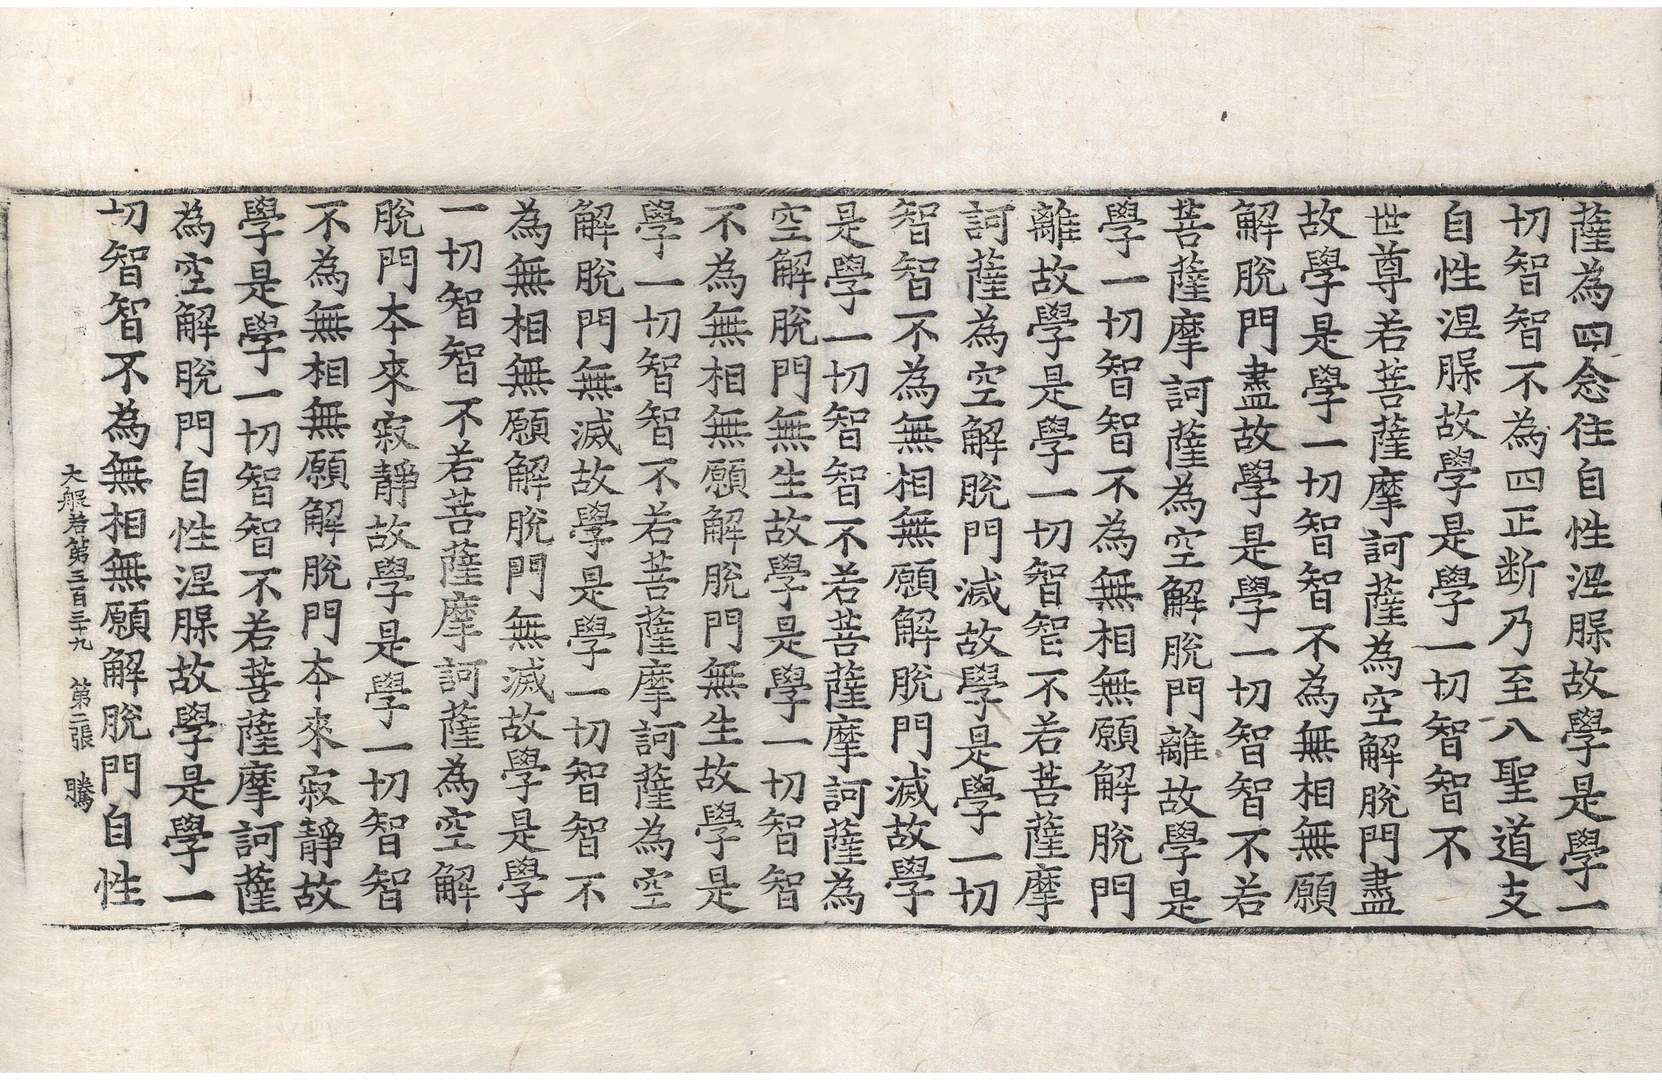 薩為四念住自性涅槃故學是學一
切智智不為四正断乃至八聖道支
自性涅槃故學是學一切智智不
世尊若菩薩摩訶薩為空解脫門盡
故學是學一切智智不為無相無願
解脫門盡故學是學一切智智不若
菩薩摩訶薩為空解脫門離故學是
學一切智智不為無相無願解脫門
離故學是學一切智智不若菩薩摩
訶薩為空解脫門滅故學是學一切
智智不為無相無願解脫門滅故學
是學一切智智不若菩薩摩訶薩為
空解脫門無生故學是學一切智智
不為無相無願解脫門無生故學是
學一切智智不若菩薩摩訶薩為空
解脫門無滅故學是學一切智智不
為無相無願解脫門無滅故學是學
一切智智不若菩薩摩訶薩為空解
脫門本來寂靜故學是學一切智智
不為無相無願解脫門本來寂靜故
學是學一切智智不若菩薩摩訶薩
為空解脫門自性涅槃故學是學一
切智智不為無相無願解脫門自性
大般若第三百三十九 第二張 騰